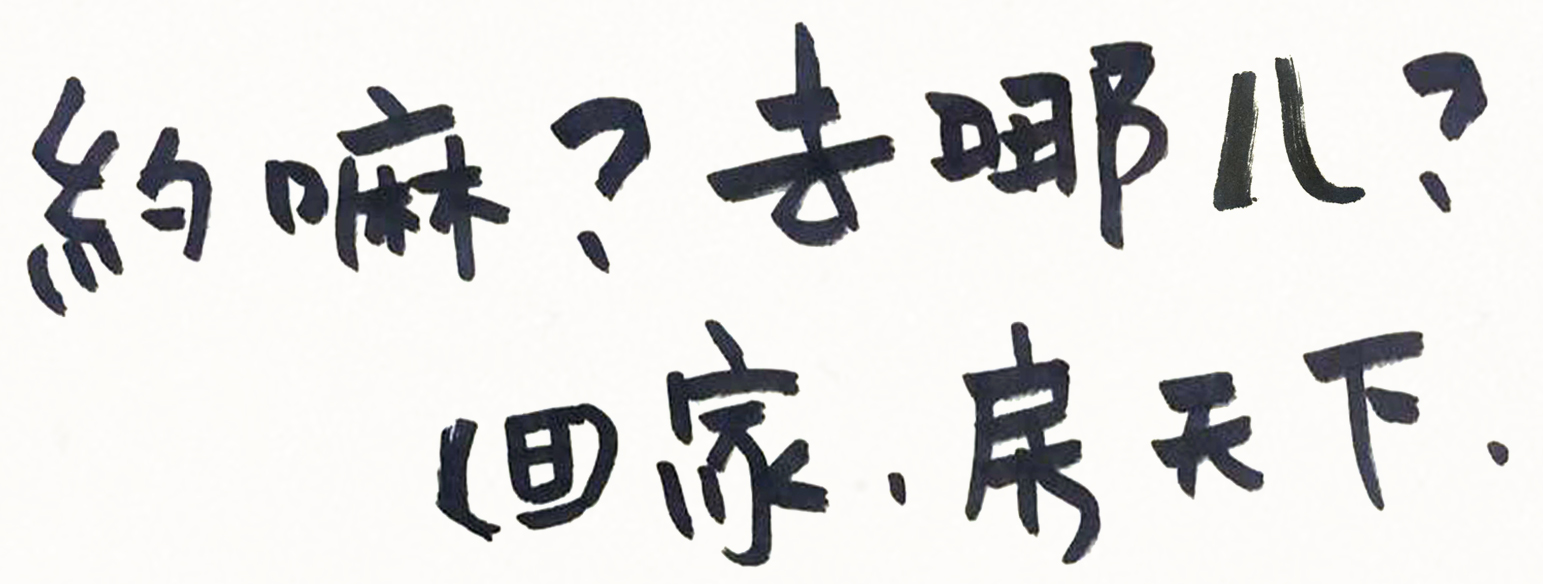 約嘛？去哪儿？
回家．房天下．